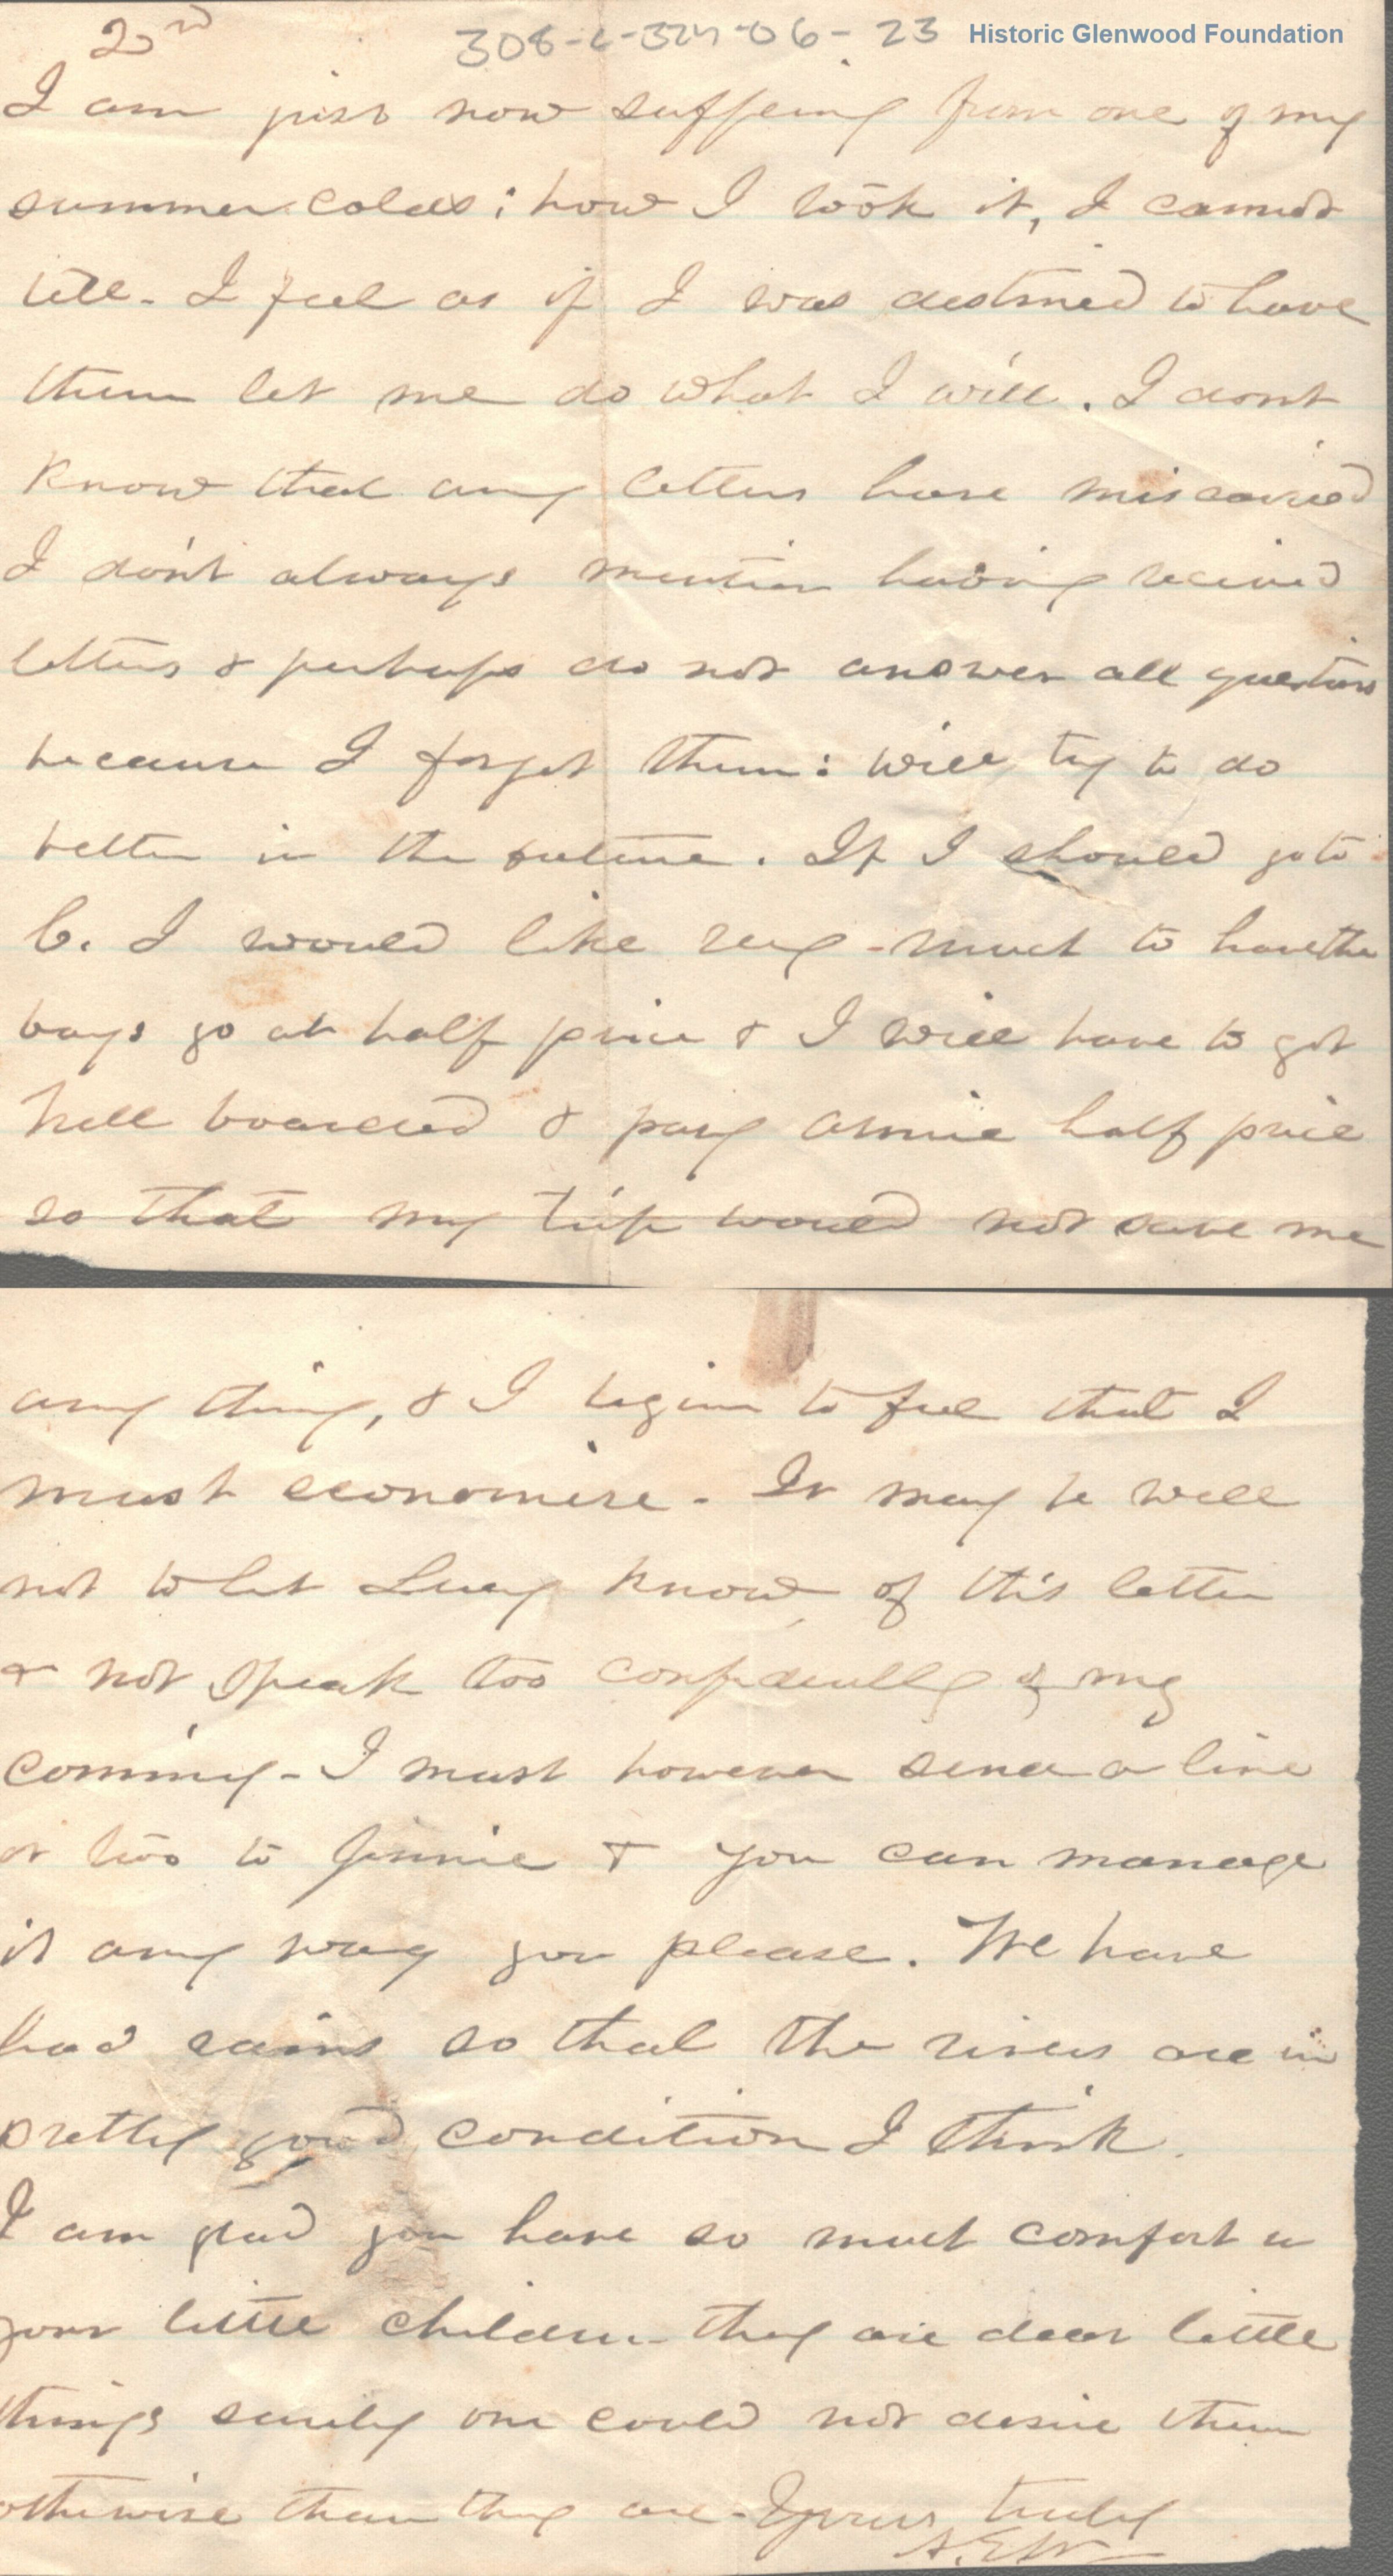 2nd
308-c-324-06-23 Historic Glenwood Foundation
I am just now suffering from one of my
summer colds; how I took it, I cannot
tell. I feel as if I was destined to have
them let me do what I will. I dont
know that any letters have miscarried
I don't always mention having recieved
letters & perhaps do not answer all questions
because I forget them: will try to do
better in the future. If I should go to
C. I would like very much to have the
boys go at half price & I will have to get
hell boarded & pay Annie half price
so that my trip would not save me
any thing, & I begin to feel that I
must economise. It may be well
not to let Lucy know of this letter
& not speak too confidently of my
coming - I must however send a line
or two to Jinnie & you can manage
it any way you please. We have
had rains so that the rivers are in
pretty good condition I think.
I am glad you have so much comfort in
your little children - they are dear little
things surely one could not desire them
otherwise than they are - Yours truly
A.E.W.